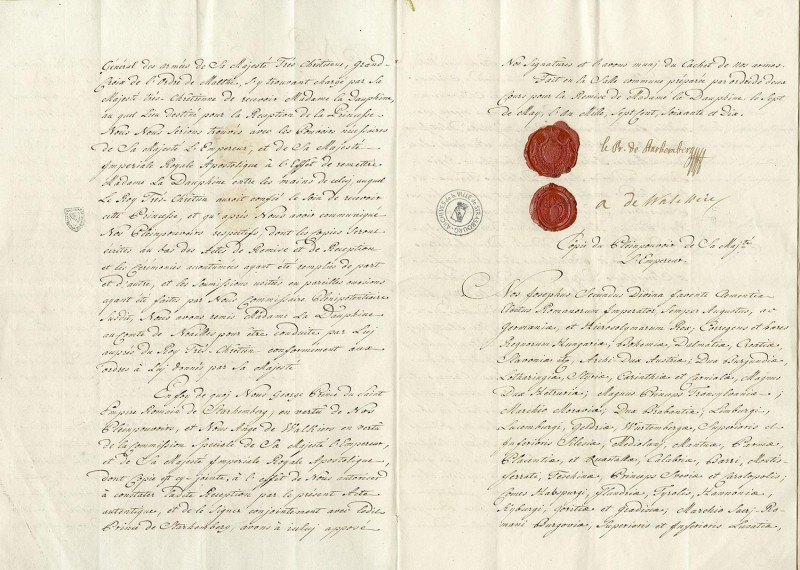 Général des armées de Sa Majesté Très Chrétienne, Grand-
Croix de l'Ordre de Malthe, s'y trouvant chargé par Sa
Majesté très Chrétienne de recevoir Madame la Dauphine,
au quel Lieu destiné pour la Reception de la Princesse
Nous Nous serions trouvés avec les Pouvoirs necessaires
de Sa Majesté L'Empereur, et de Sa Majesté
Imperiale Royale Apostolique à l'Effet de remettre
Madame La Dauphine entre les mains de celuy, auquel
Le Roy Très-Chrétien auroit confié le soin de recevoir
cette Princesse, et qu'après Nous avoir communiqué
Nos Pleinpouvoirs respectifs, dont les Copies seront
écrites au bas des Actes de Remise et de Reception
et les Cérémonies accoutumées ayant été remplies de part
et d'autre, et les soumissions usitées en pareilles occasions
ayant été faites par Nous Commissaire Plenipotentiaire
susdit, Nous avons remis Madame La Dauphine
au Comte de Noailles pour être conduite par Luy
auprès du Roy Très-Chrétien conformement aux
ordres à Luy donnés par Sa Majesté
En foy de quoy Nous George Prince du Saint
Empire Romain de Starhemberg, en vertu de Nos
Pleinpouvoirs, et Nous Ange de Walkiers en vertu
de la Commission Speciale de Sa Majesté l'Empereur,
et de Sa Majesté Imperiale Royale Apostolique,
dont Copie est cy-jointe, à l'effet de Nous autoriser
à constater ladite Reception par le present Acte
autentique, et de le signer conjointement avec ledit
Prince de Starhemberg, avons à iceluy apposé
Nos Signatures et l'avons muny du Cachet de nos armes.
Fait en la Salle commune préparée par ordre de deux
Cours pour la Remise de Madame la Dauphine le Sept
de May, l'An Mille, Sept Cent, Soixante et Dix.
le Pr. de Starhemberg
a de Walckiers
ARCHIVES de la VILLE de STRASBOURG
Copie du Pleinpouvoir de Sa Majté
L'Empereur.
Nos Josephus Secundus Divina favente Clementia
Electus Romanorum Imperator Semper Augustus, ac
Germaniæ, et Hierosolymarum Rex, Corregens et Hæres
Regnorum Hungariæ, Bohemiæ, Dalmatiæ, Croatiæ,
Slavoniæ &, Archi-Dux Austriæ; Dux Burgundiæ,
Lotharingiæ, Styriæ, Carinthiæ et Carniolæ, Magnus
Dux Hetruriæ; Magnus Princeps Transylvaniæ;
Marchio Moraviæ; Dux Brabantiæ, Limburgi,
Luxemburgi, Geldriæ, Würtembergæ, Superioris et
Inferioris Silesiæ, Mediolani, Mantuæ, Parmæ,
Placentiæ, et Guastallæ, Calabriæ, Barri, Montis-
Ferrati, Teschinæ, Princeps Sueviæ et Carolopolis,
Comes Habspurgi, Flandriæ, Tyrolis, Hannoniæ,
Kyburgi, Goritiæ et Gradiscæ; Marchio Sacri Ro-
mani Burgoviæ, Superioris et Inferioris Lusatiæ,